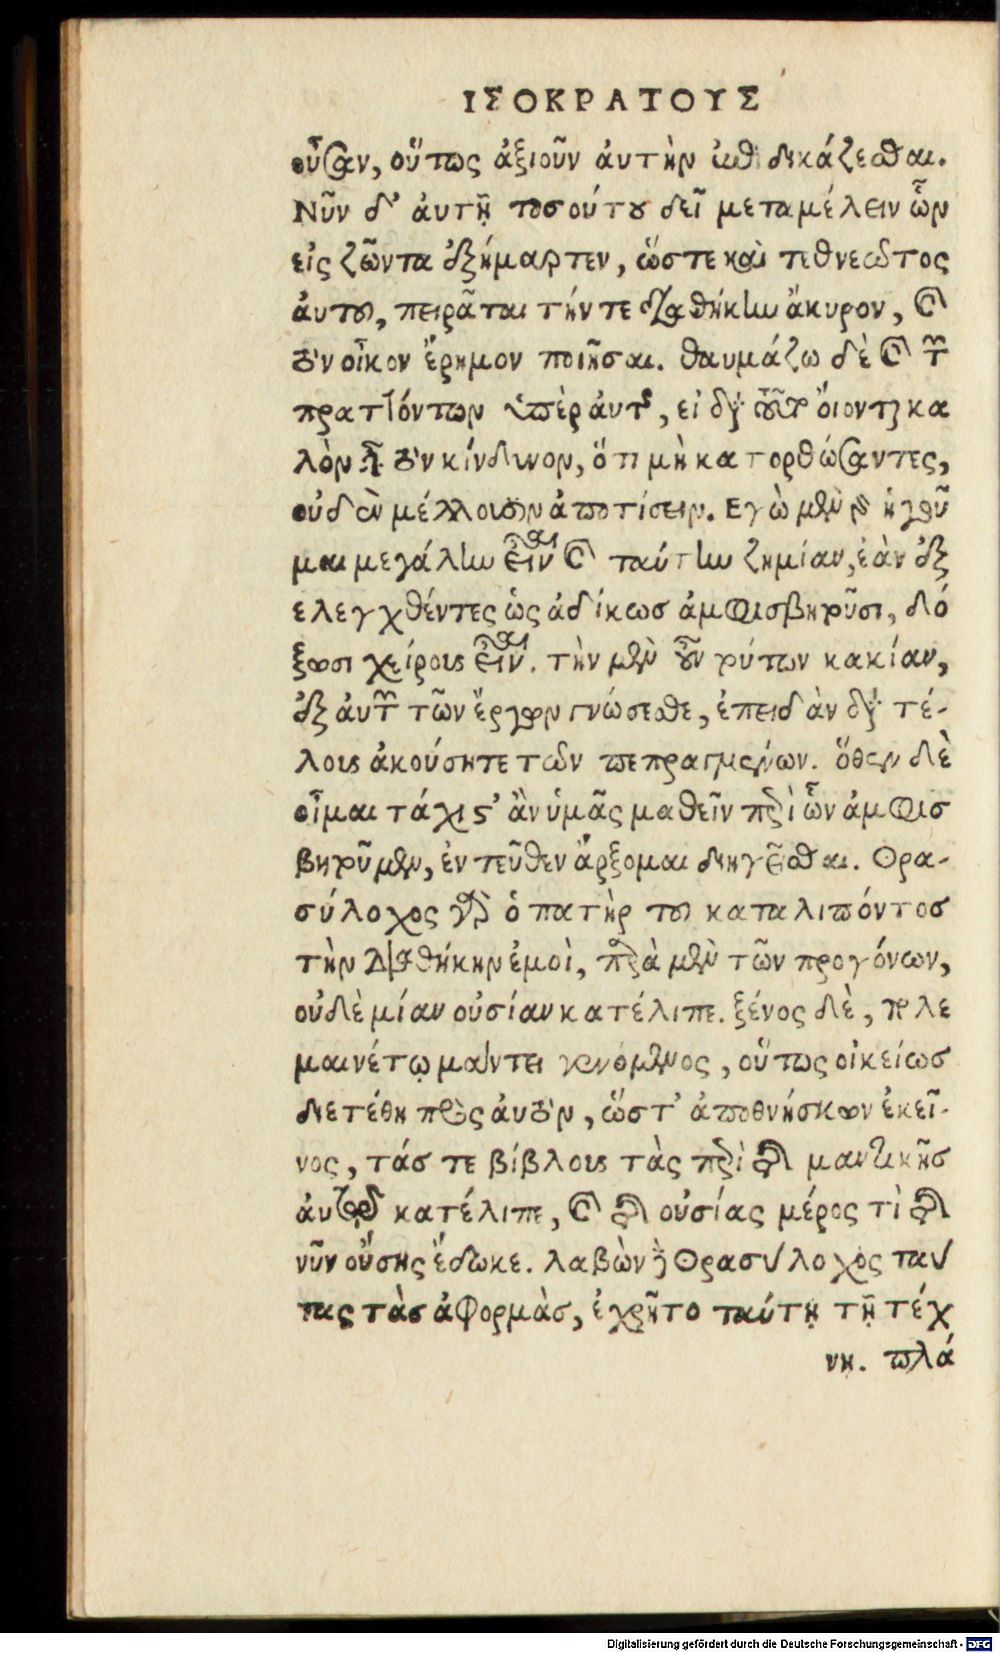 ΙΣΟΚΡΑΤΟΥΣ
οὖσαν, οὕτως ἀξιοῦν ἀυτὴν ἐπιδικάζεσθαι.
Νῦν δ' ἀυτῇ τοσούτου δεῖ μεταμέλειν ὧν
εἰς ζῶντα ἐξήμαρτεν, ὥστε καὶ τεθνεῶτος
ἀυτοῦ, πειρᾶται τήν τε διαθήκην ἄκυρον, καὶ
τὸν οἶκον ἔρημον ποιῆσαι. θαυμάζω δὲ καὶ τῶν
πραττόντων ὑπὲρ ἀυτῆς, εἰ διὰ τοῦτο ὄιονται κα
λὸν εἶναι τὸν κίνδυνον, ὅτι μὴ κατορθώσαντες,
οὐδὲν μέλλουσιν ἀποτίσειν. Εγὼ μὲν γὰρ ἡγοῦ
μαι μεγάλην εἶναι καὶ ταύτην ζημίαν, ἐὰν ἐξ
ελεγχθέντες ὡς ἀδίκωσ ἀμφισβητοῦσι, δό
ξωσι χείρους εἶναι. τὴν μὲν οὖν τούτων κακίαν,
ἐξ ἀυτῶν τῶν ἔργων γνώσεσθε, ἐπειδὰν διὰ τέ-
λους ἀκούσητε τῶν πεπραγμένων. ὅθεν δὲ
οἶμαι τάχιστ' ἂν ὑμᾶς μαθεῖν περὶ ὧν ἀμφισ
βητοῦμεν, ἐντεῦθεν ἄρξομαι διηγεῖσθαι. Θρα-
σύλοχος γὰρ ὁ πατὴρ τοῦ καταλιπόντοσ
τὴν διαθήκην ἐμοὶ, παρὰ μὲν τῶν προγόνων,
οὐδὲ μίαν οὐσίαν κατέλιπε. ξένος δὲ, πολε
μαινέτῳ μάντει γενόμενος, οὕτως οἰκείωσ
διετέθη πρὸς ἀυτὸν, ὥστ' ἀποθνήσκων ἐκεῖ-
νος, τάσ τε βίβλους τὰς περὶ τῆς μαντικῆσ
ἀυτῷ κατέλιπε, καὶ τῆς οὐσίας μέρος τὶ τῆς
νῦν οὔσης ἔδωκε. λαβὼν δὲ Θρασύλοχος ταύ
τας τὰσ ἀφορμὰσ, ἐχρῆτο ταύτῃ τῇ τέχ
νῃ. πλά
Digitalisierung gefördert durch die Deutsche Forschungsgemeinschaft - DFG